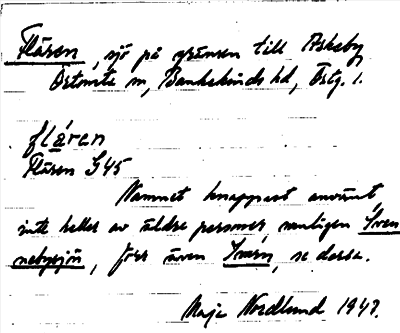 Flären, sjö på gränsen till Askeby
Örtomta sn, Bankekinds hd, Östg. l.
flä́ren
Flären G45
Namnet knappast använt,
inte heller av äldre personer, vanligen Sven
nebysjön, förr även Svärn, se dessa.
Maja Nordlund 1947.